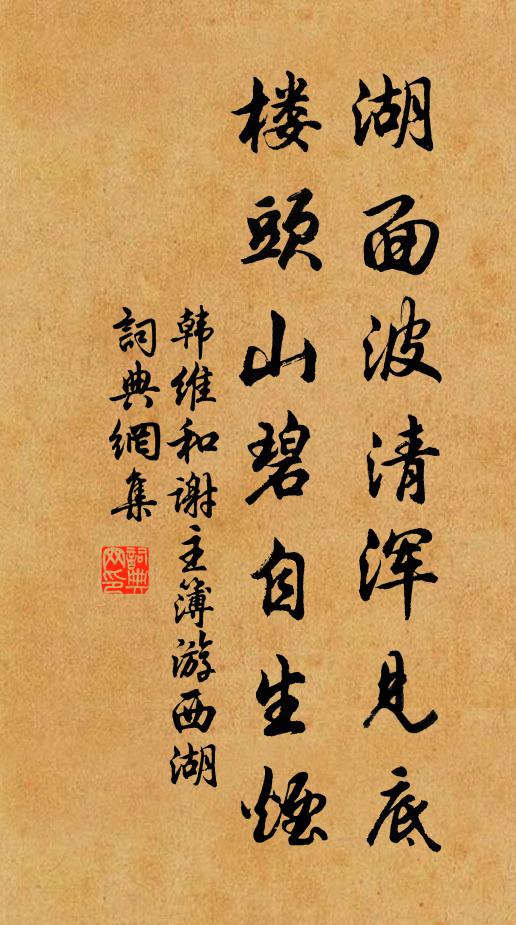 湖面波清浑见底
楼頭山碧自生煙
韩维和谢主簿游西湖
詞典網集
詞典网印